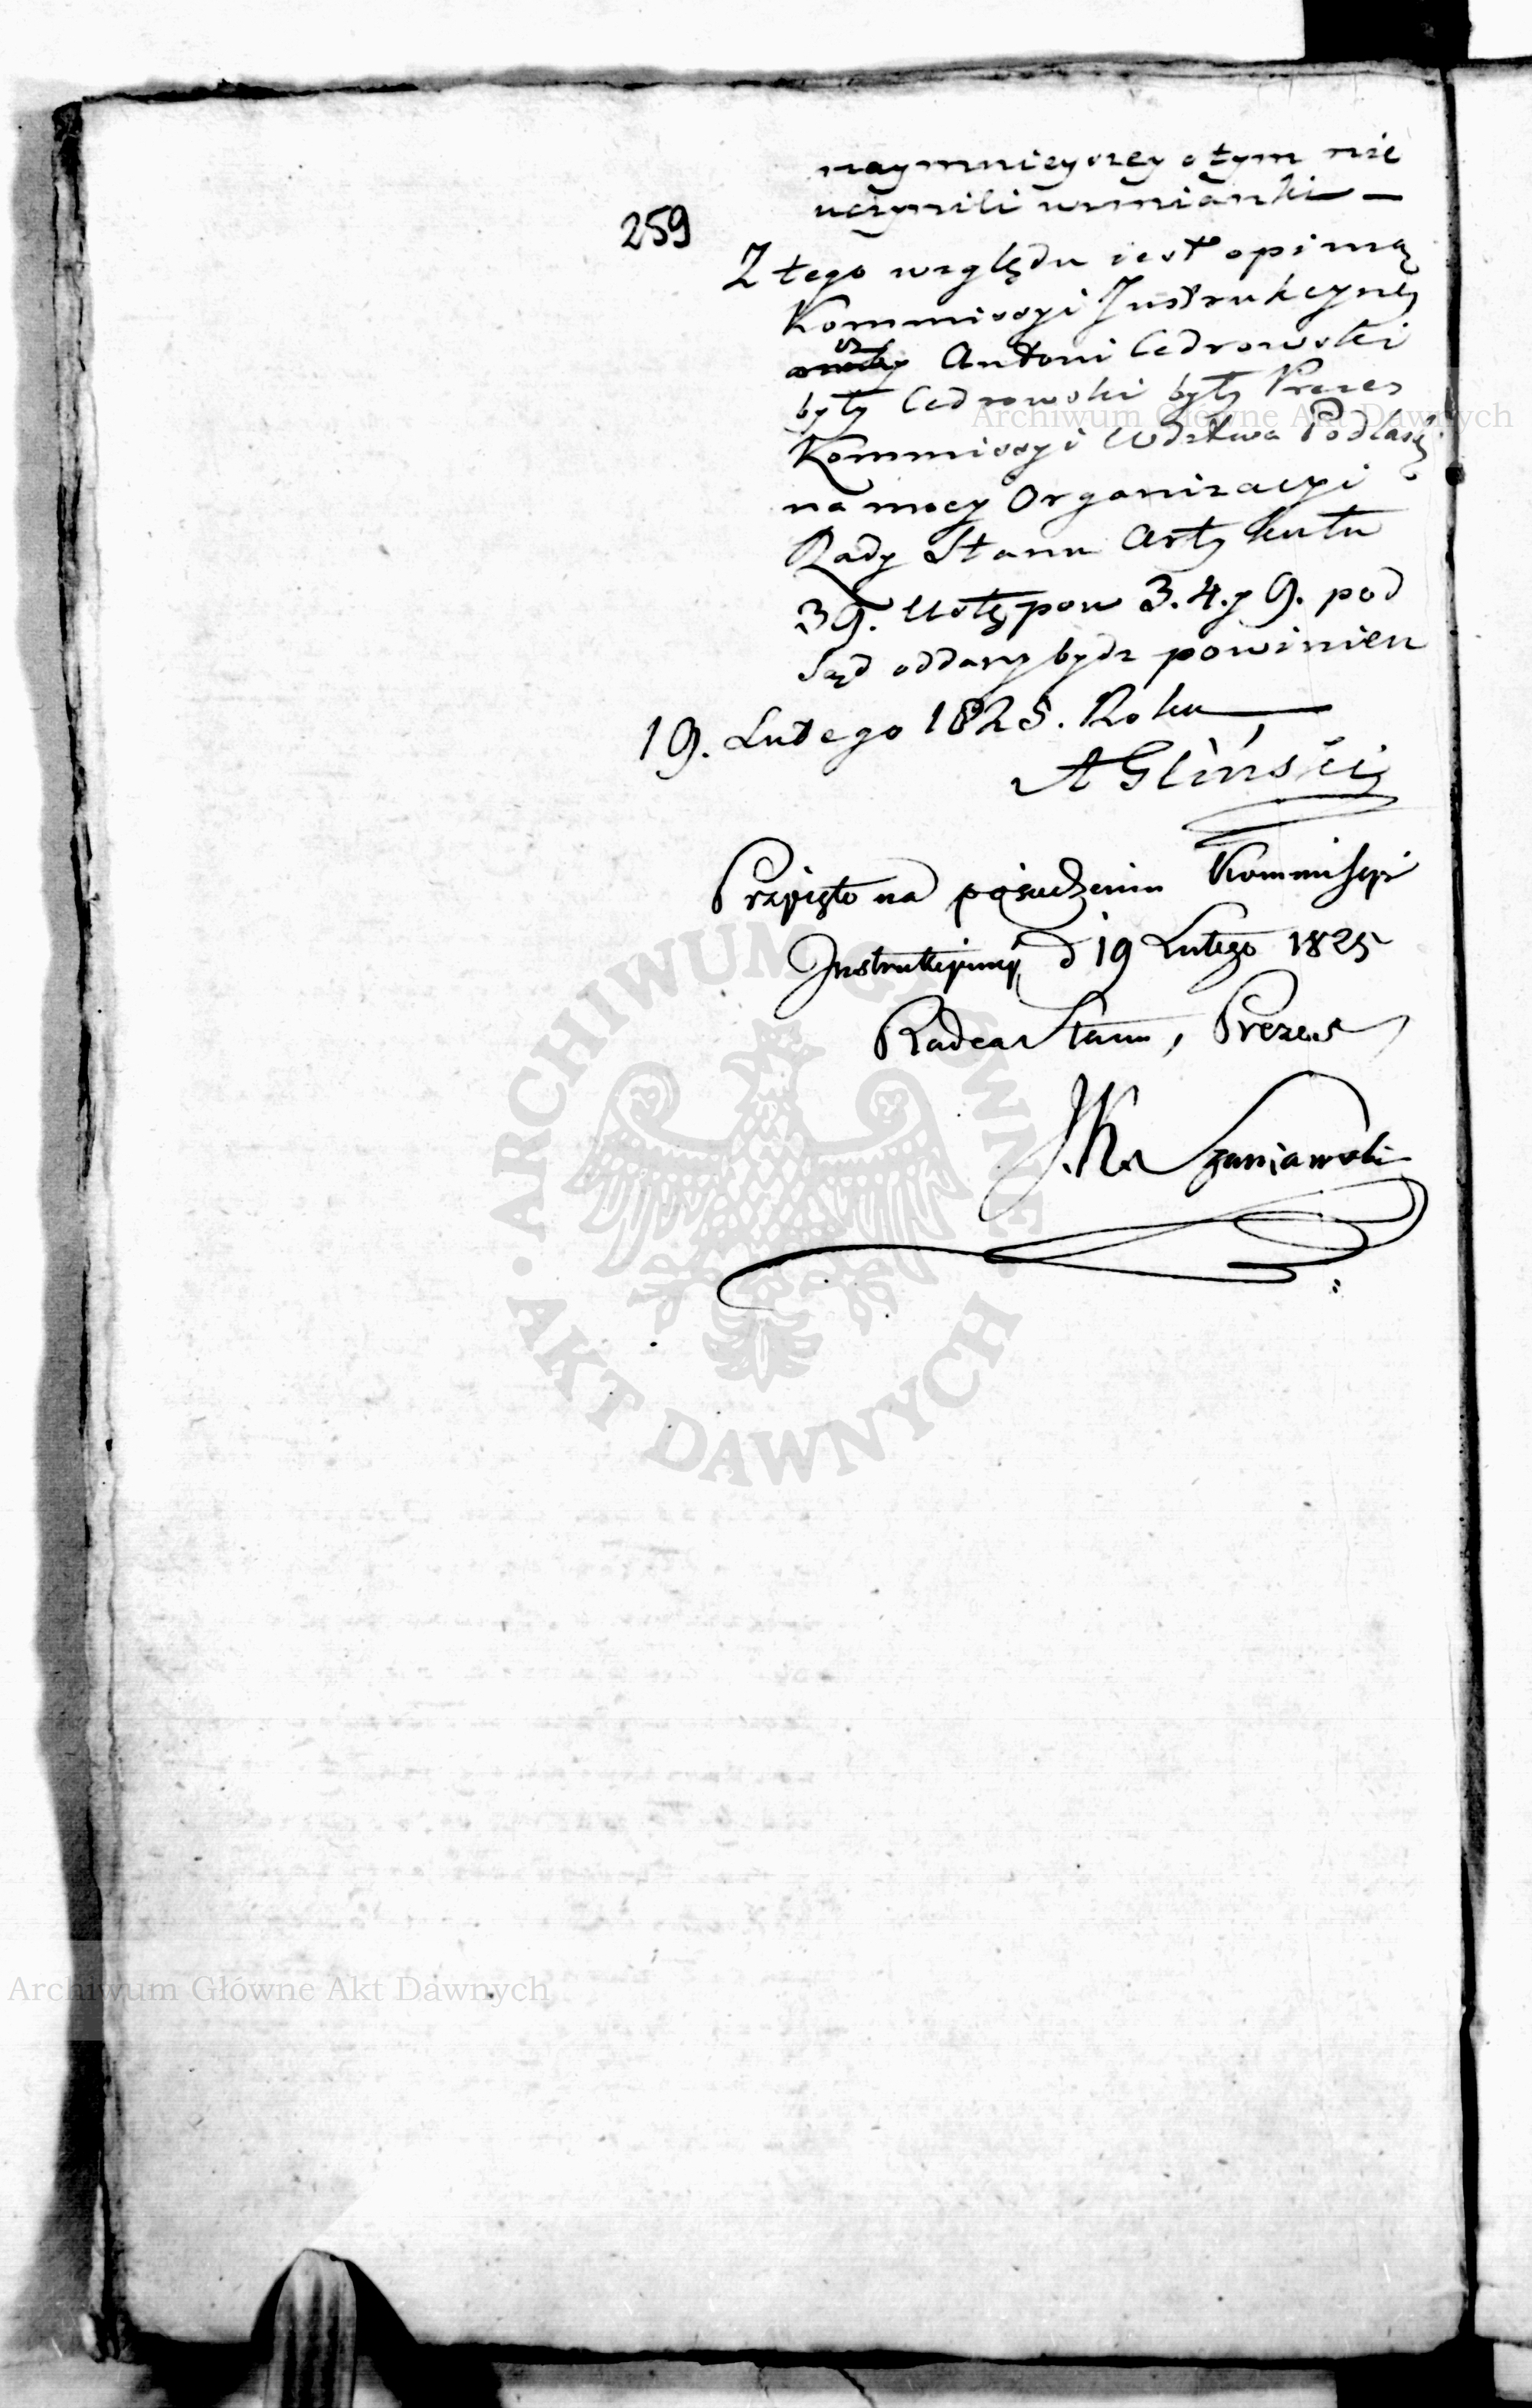 naymnieyszey o tym nie
uczynili wzmianki —
259
Z tego względu iest opinią
Kommissyi Instrukcyiney
iż Antoni Cedrowski
były Cedrowski były Prezes
Kommissyi Wdztwa Podlask:
na mocy Organizacyi
Rady Stanu Artykułu
39. Ustępow 3. 4. y 9. pod
Sąd oddany bydz powinien
19. Lutego 1825. Roku
A Gliński
Przyięto na posiedzeniu Kommissyi
Instrukcyiney d 19 Lutego 1825
Radca Stanu, Prezes
J. K. Szaniawski
Archiwum Główne Akt Dawnych
ARCHIWUM GŁÓWNE
• AKT DAWNYCH •
Archiwum Główne Akt Dawnych